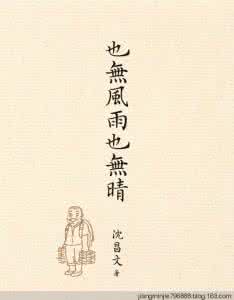 也無風雨也無晴
沈昌文 著
jiangminjie796888.blog.163.com